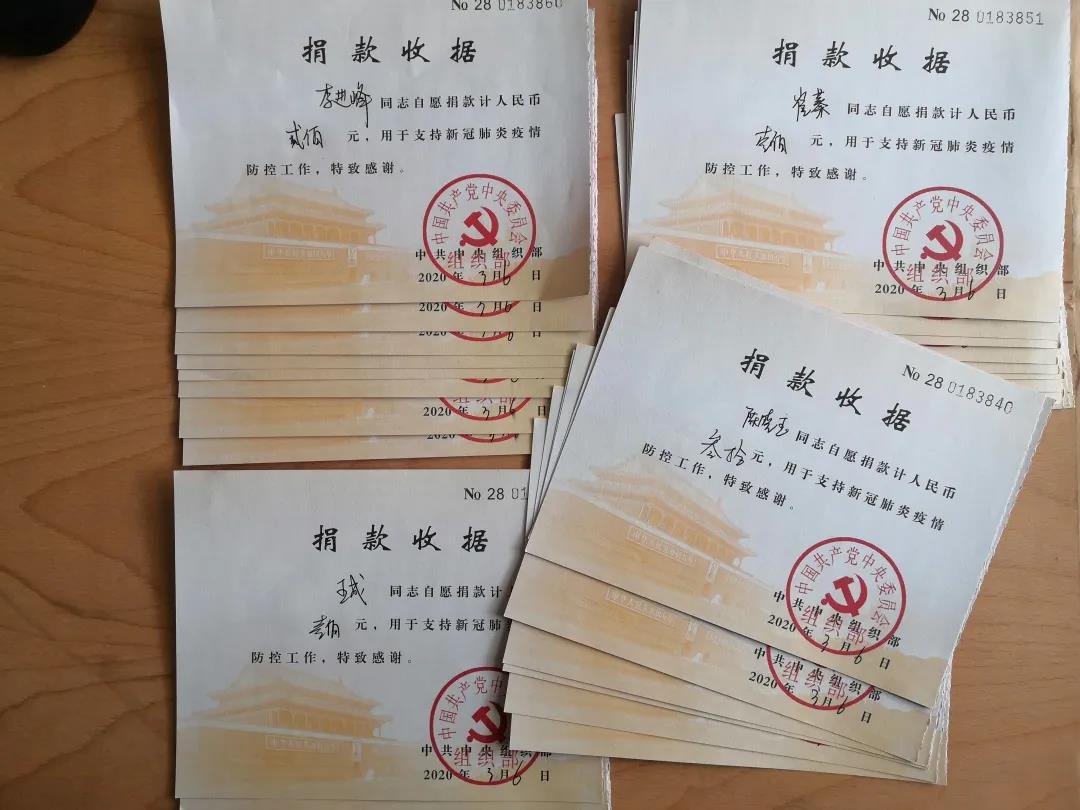 No 28 0183860
捐款收据
李进峰 同志自愿捐款计人民币
贰佰 元，用于支持新冠肺炎疫情
防控工作，特致感谢。
中国共产党中央委员会
组织部
中共中央组织部
2020年3月6日
2020年3月6日
2020
2020年3月6日
2020
No 28 0183851
捐款收据
同志自愿捐款计人民币
壹佰 元，用于支持新冠肺炎疫情
防控工作，特致感谢。
中国共产党中央委员会
组织部
中共中央组织部
2020年3月6日
No 28 0183840
捐款收据
陈晓玉 同志自愿捐款计人民币
叁拾 元，用于支持新冠肺炎疫情
防控工作，特致感谢。
中国共产党中央委员会
组织部
中共中央组织部
2020年3月6日
中共中央组织部
组织部
2020年3月6日
No 28 01
捐款收据
王成 同志自愿捐款计人
壹佰 元，用于支持新冠肺
防控工作，特致感谢。
中国共产党中
组织部
中共中央组织
2020年3月6日